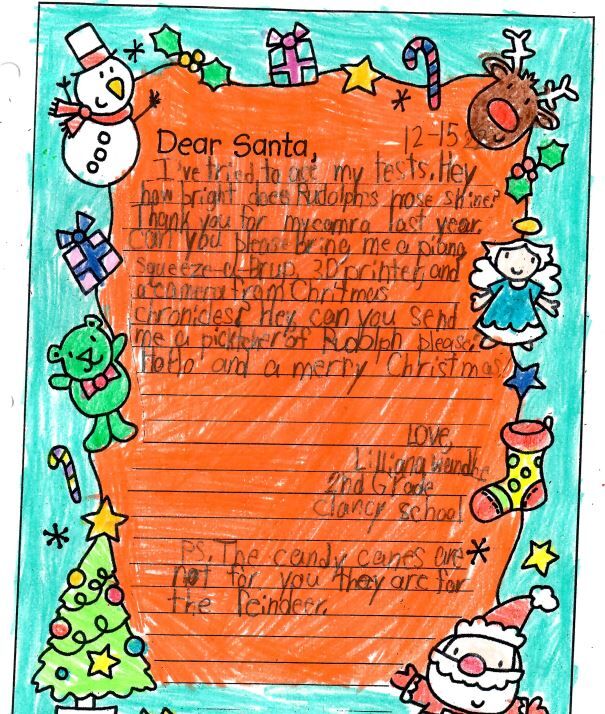 12-15
Dear Santa,
I've tried to ace my tests. Hey
how bright does Rudolph's nose shine?
Thank you for my camra last year.
Can you please bring me a piano,
squeeze-a- 3D printer, and
a camera from Christmas
chronicles? Hey, can you send
me a of Rudolph please?
HoHo and a merry Christmas
Love,
Lilliana
2nd Grade
Clancy school
PS. The candy canes are
not for you they are for
the Reindeer.